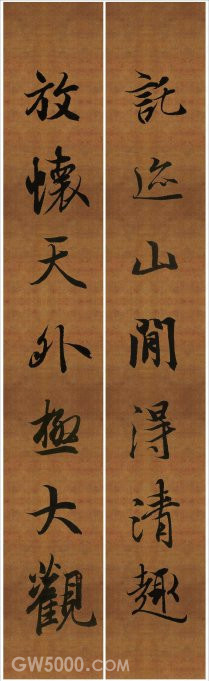 託迹山間得清趣
放懷天外極大觀
GW5000.com